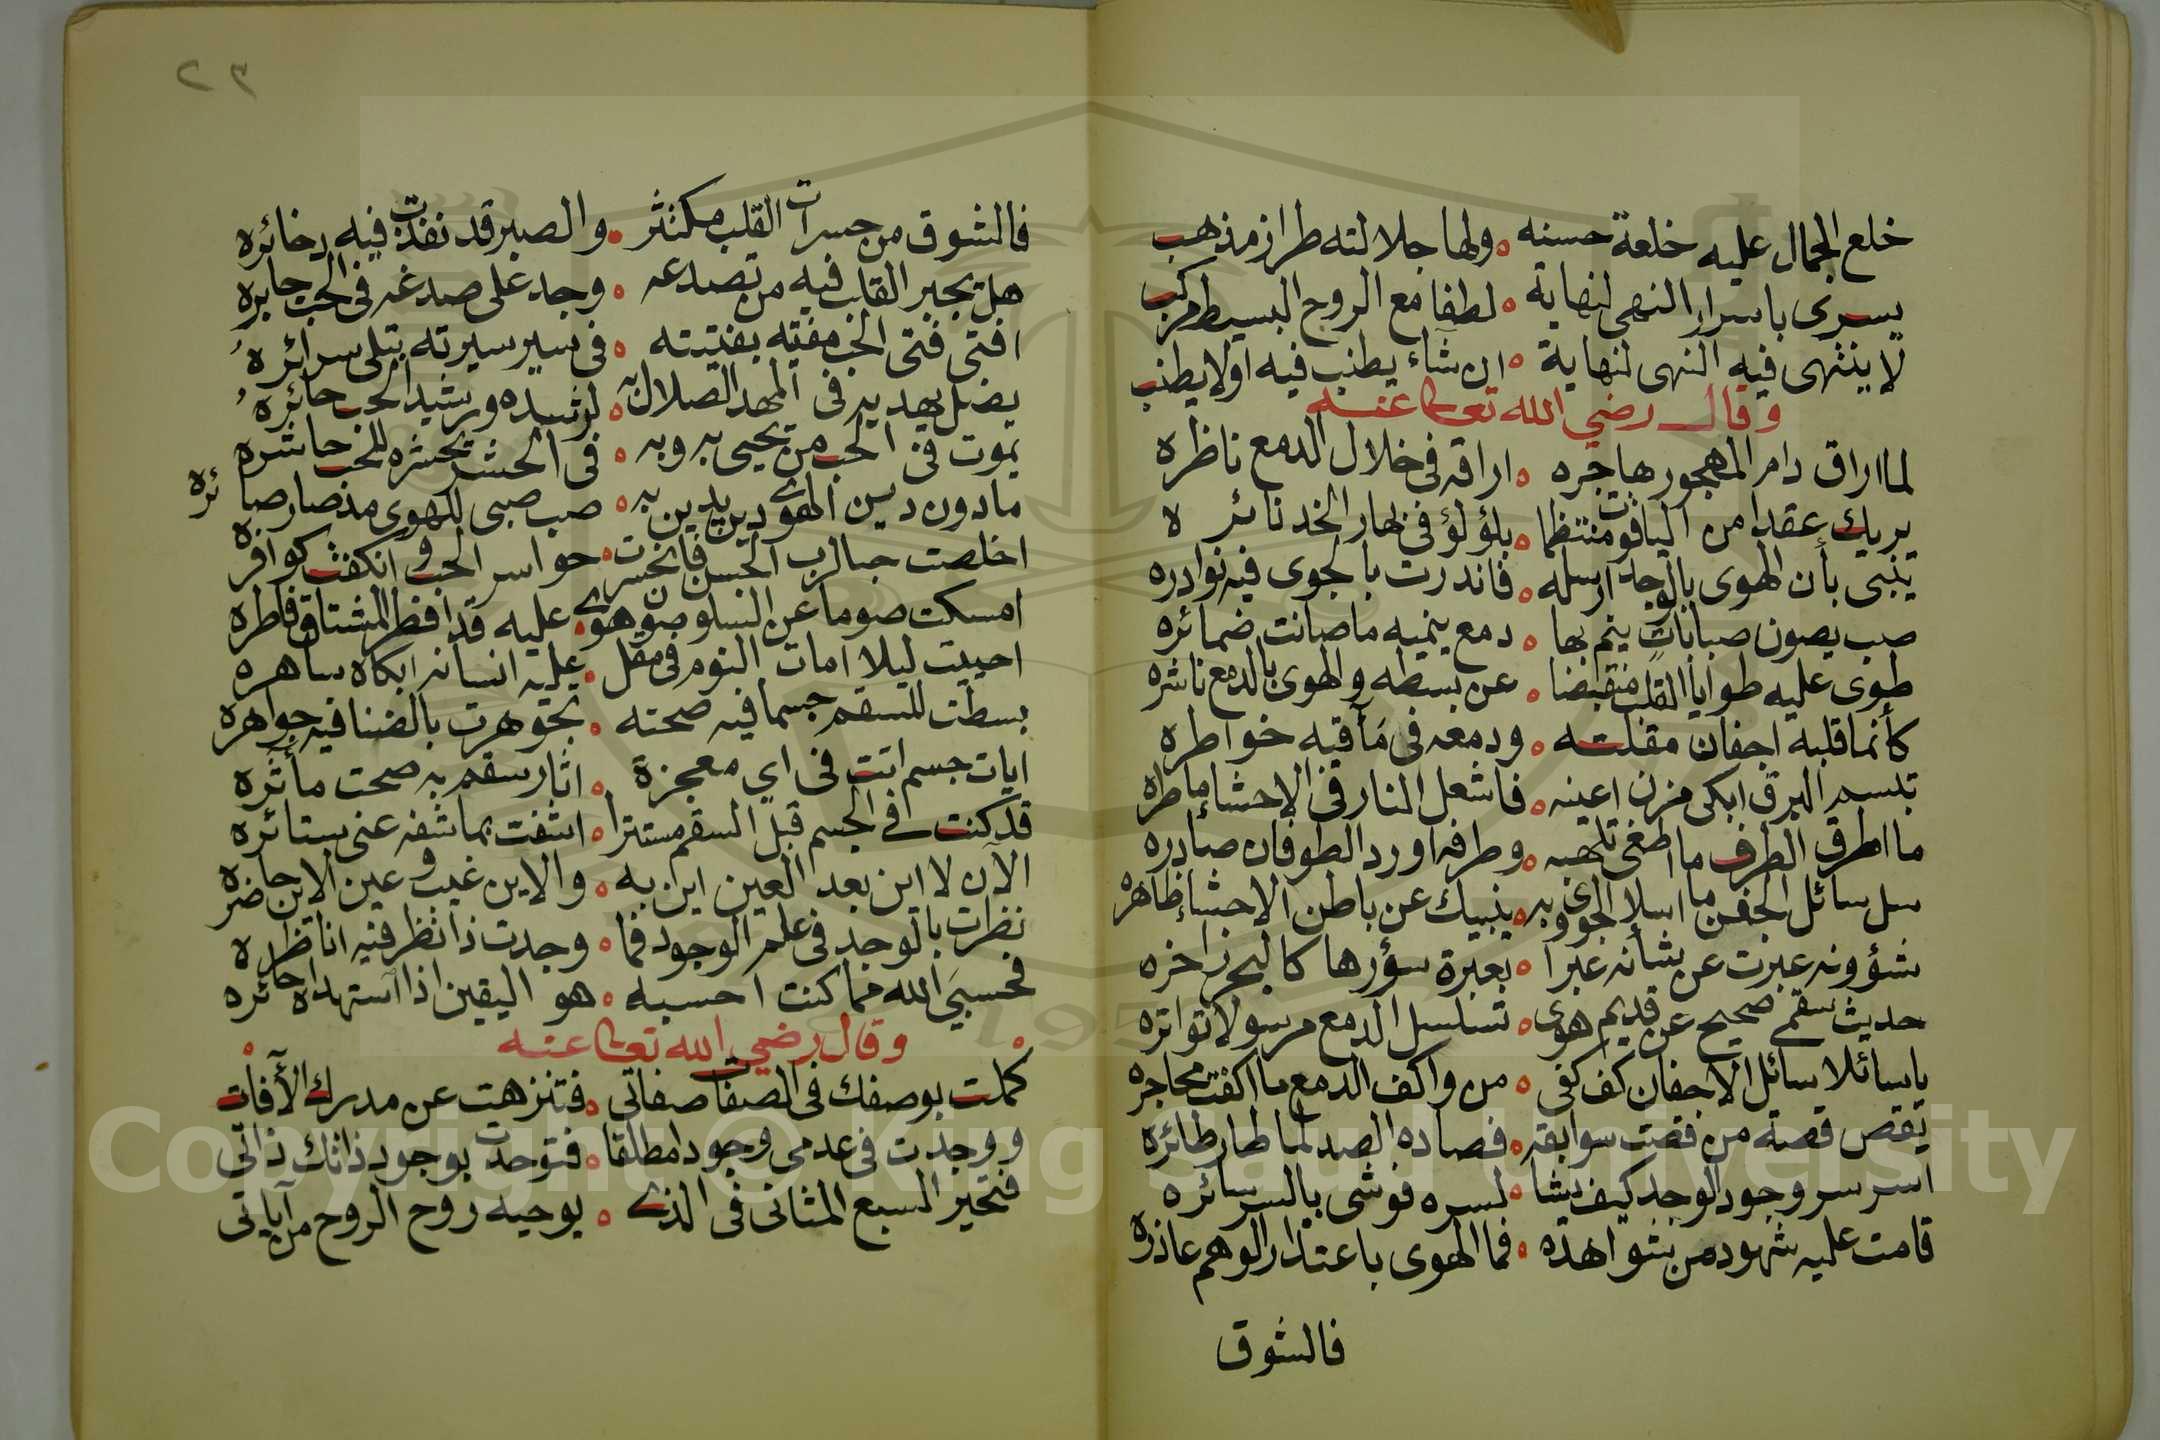 خلع الجمال عليه خلعة حسنه ه ولها جلالته طراز مذهب
يسرى باسرار النهى لنهاية ه لطفا مع الروح البسيط مركب
لا ينتهى فيه النهى لنهاية ه ان شاء يطنب فيه او لا يطنب
وقال رضي الله تعالى عنه
لما اراق دام المهجور هاجره ه اراقه فى خلال الدمع ناظره
يريك عقدا من الياقوت منتظما ه بلؤلؤ فى نهار الخد ناثره
ينبى بأن الهوى بالوجد ارسله ه فاندرت بالجوى فيه نوادره
صب يصون صبابات ينم بها ه دمع ينميه ما صانت ضمائره
طوى عليه طوايا القلب منقبضا ه عن بسطه والهوى بالدمع ناشره
كأنما قلبه اجفان مقلته ه ودمعه فى مآقيه خواطره
تبسم البرق ابكى مزن اعينه ه فاشعل النار فى الاحشاء ماطره
ما اطرق الطرف ما اطغى تلهبه ه وطرفه اورد الطوفان صادره
سل سائل الجفن ما اسلا الجوى وبه ه ينبيك عن باطن الاحشاء ظاهره
شؤونه عبرت عن شأنه عبرا ه بعبرة سؤرها كالبحر زاخره
حديث سقمى صحيح عن قديم هوى ه تسلسل الدمع مرسولا تواتره
يا سائلا سائل الاجفان كف كفى ه من واكف الدمع ما اكفت محاجره
يقص قصة من قصت سوابقه ه فصاده الصد لما طار طائره
اسر سر وجود الوجد كيف يشا ه لسره فوشى بالسر سائره
قامت عليه شهود من شواهده ه فما الهوى باعتذار الوهم عاذره
فالشوق
٢٣
فالشوق من حسرات القلب مكتثر ه والصبر قد نفدت فيه دخائره
هل يجبر القلب فيه من تصدعه ه وجد على صدغه فى الحب جابره
افتى فتى الحب مفتيه بفتيته ه فى سير سيرته تبلى سرائره
يضل يهديه فى المهد الضلال به ه لرشده ورشيد الحب حائره
يموت فى الحب من يحيى به وبه ه فى الحشر يحشره للحب حاشره
ما دون دين الهوى دين يدين به ه صب صبى للهوى مذ صار صائره
اخلصت حبا لرب الحسن فانحسرت ه حواسر الحب وانكفت كوافره
امسكت صوما عن السلوان صوهوى ه عليه قد افطر المشتاق فاطره
احييت ليلا امات النوم فى مقل ه عليه انسانه ابكاه ساهره
بسطت للسقم جسما فيه صحته ه تجوهرت بالضنا فيه جواهره
ايات جسم اتت فى اي معجزة ه اثار سقم به صحت مأثره
قد كنت في الجسم قبل السقم مستترا ه اشفت بما شفه عنى ستائره
الآن لا اين بعد العين اين به ه والاين غيب وعين الاين حاضره
نظرت بالوجد فى علم الوجود فما ه وجدت ذا نظر فيه اناظره
فحسبي الله مما كنت احسبه ه هو اليقين اذا استهداه حائره
وقال رضي الله تعالى عنه
كملت بوصفك فى الصفات صفاتى ه فتنزهت عن مدرك الآفات
ووجدت فى عدمى وجودا مطلقا ه فتوحدت بوجود ذاتك ذاتى
فتحيز السبع المثانى فى الذي ه يوحيه روح الروح من آياتى
Copyright © King Saud University